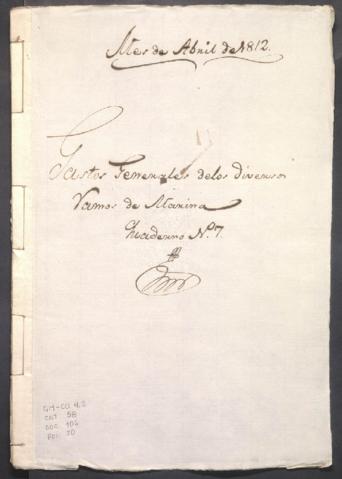 Mes de Abril de 1812.
Gastos Generales delos diversos
Ramos de Marina
Quaderno N.º 7.
GM-CO 4.2
CAJ 58
DOC 106
FOL 20